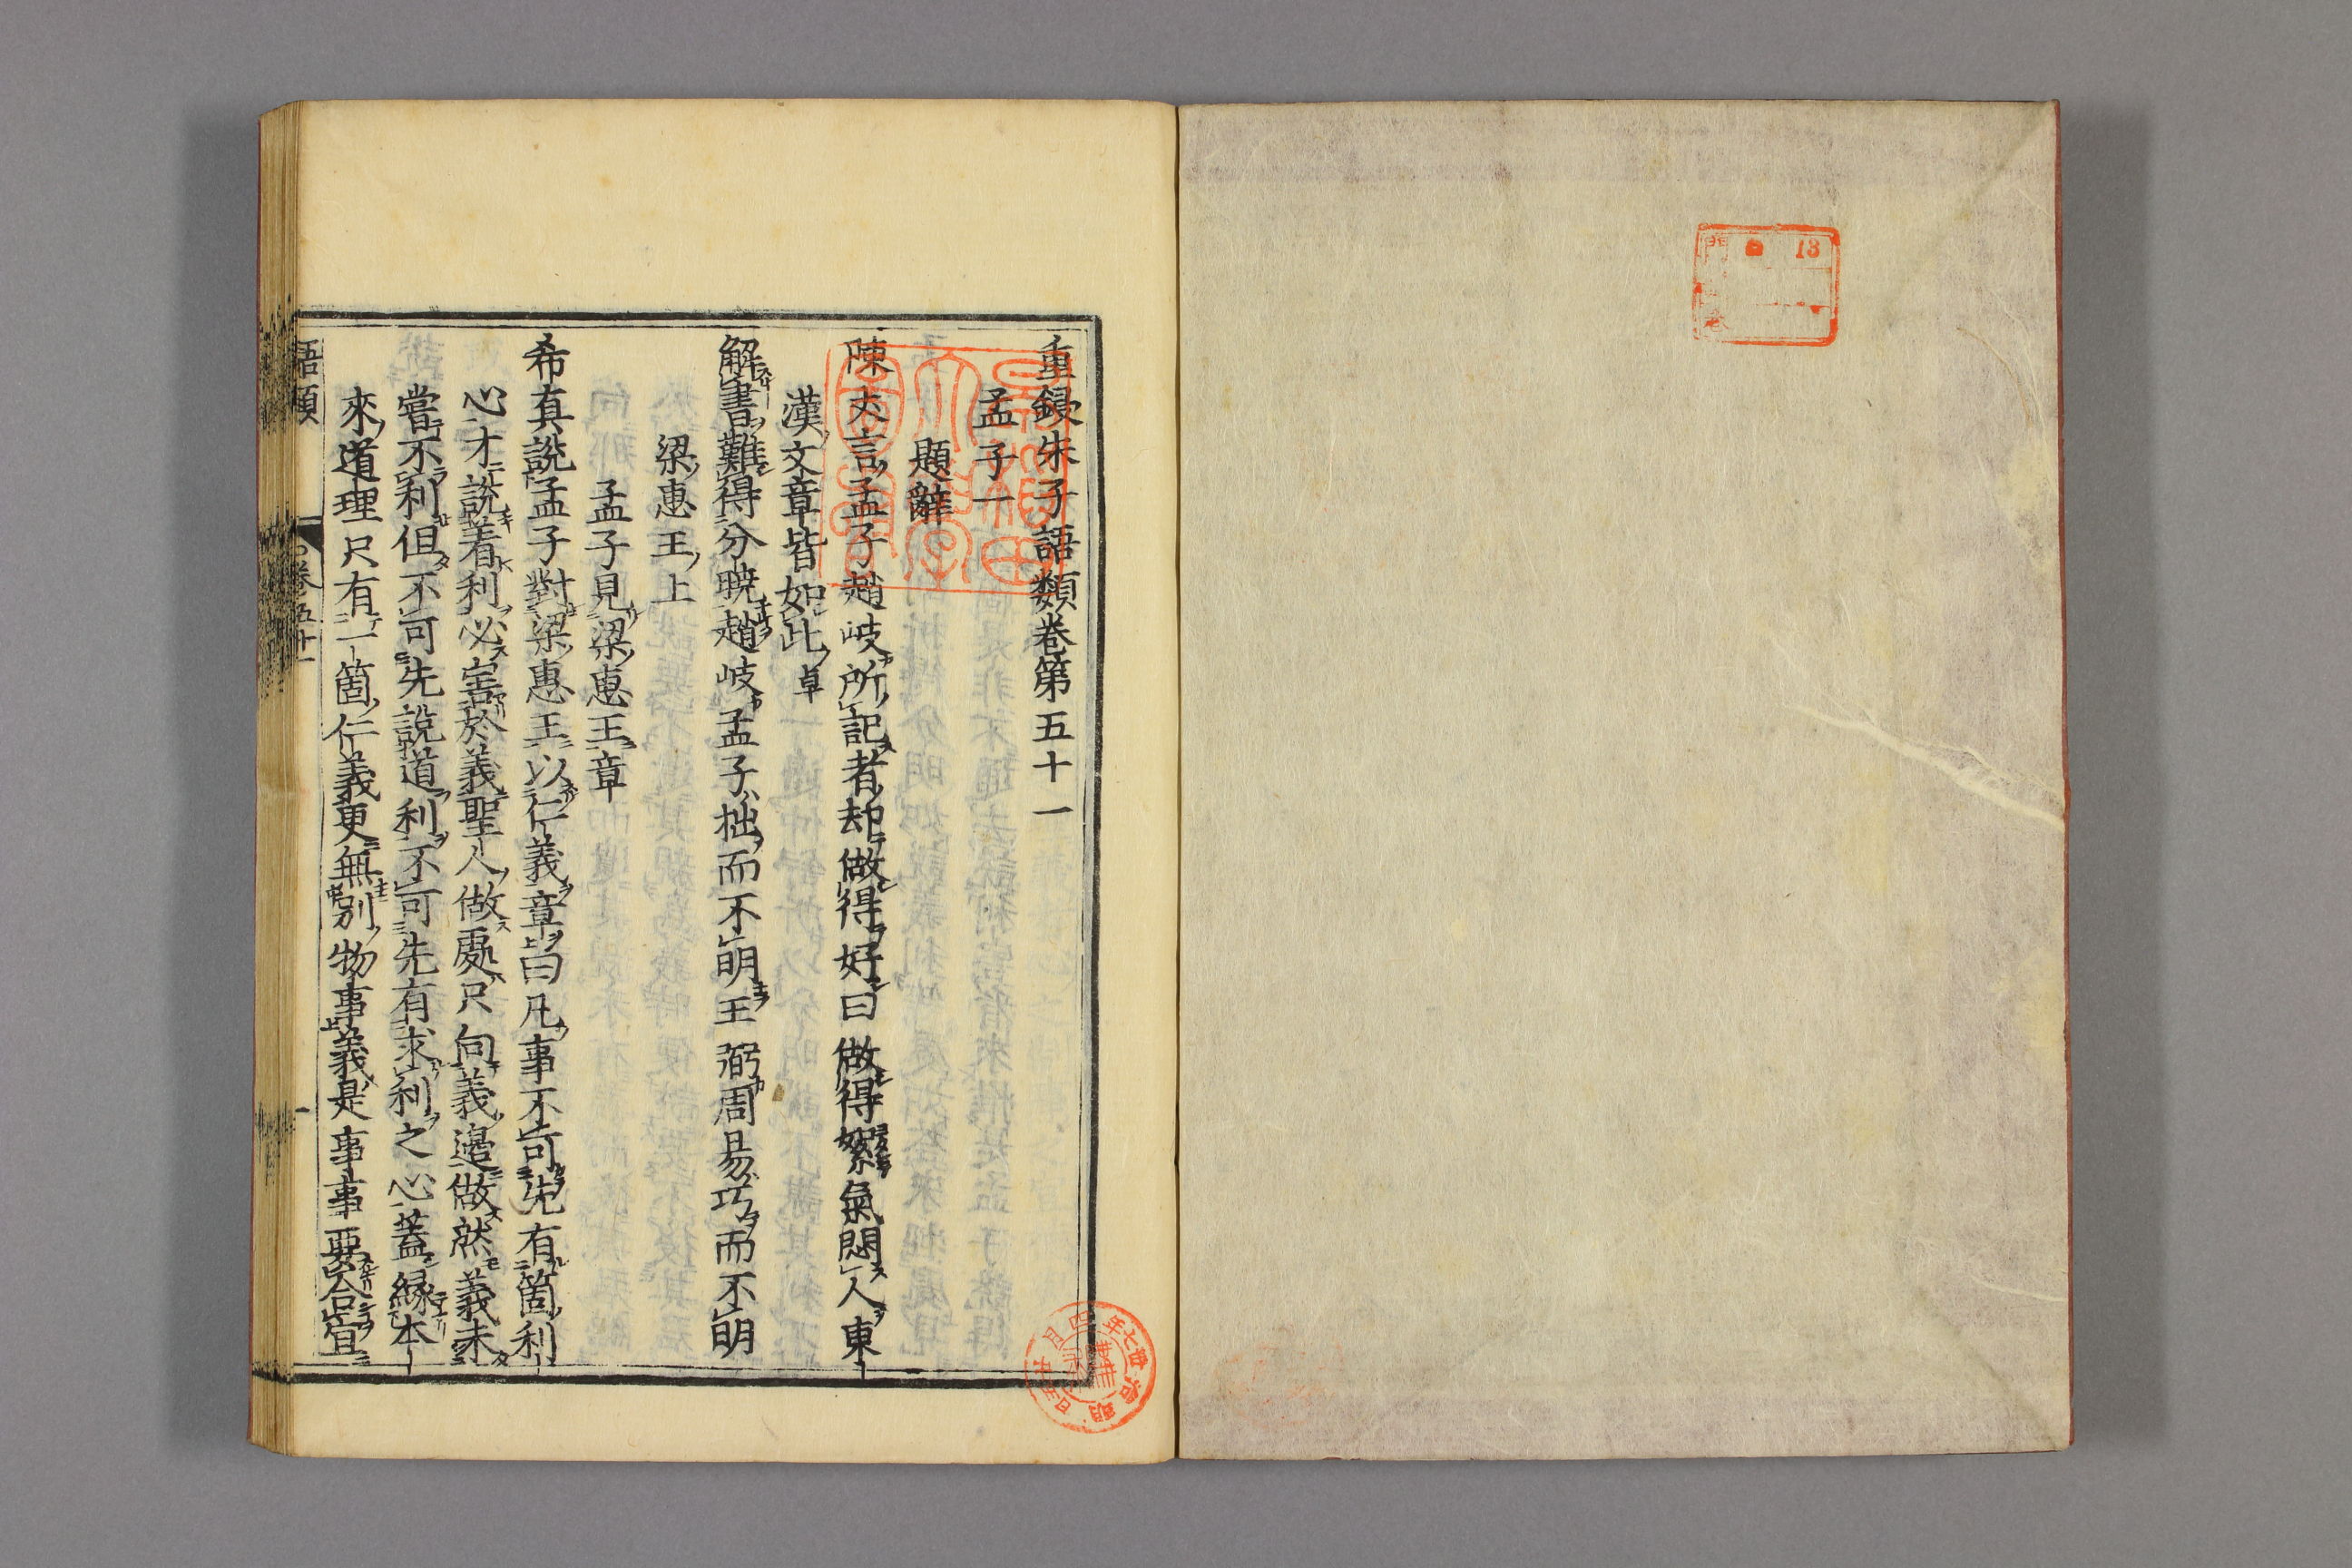 門 13
卷
重鋟朱子語類卷第五十一
孟子一
題辭
陳丈言孟子趙岐所記者却做得好曰做得絮氣悶人東
漢文章皆如此卓
解書難得分曉趙岐孟子拙而不明王弼周易巧而不明
梁惠王上
孟子見梁惠王章
希真說孟子對梁惠王以仁義章曰凡事不可先有箇利
心才說着利必害於義聖人做處只向義邊做然義未
嘗不利但不可先說道利不可先有求利之心蓋緣本
來道理只有一箇仁義更無別物事義是事事要合宜
語類 卷五十一 一
早稻田大學圖書
明治卅七年四月廿五日